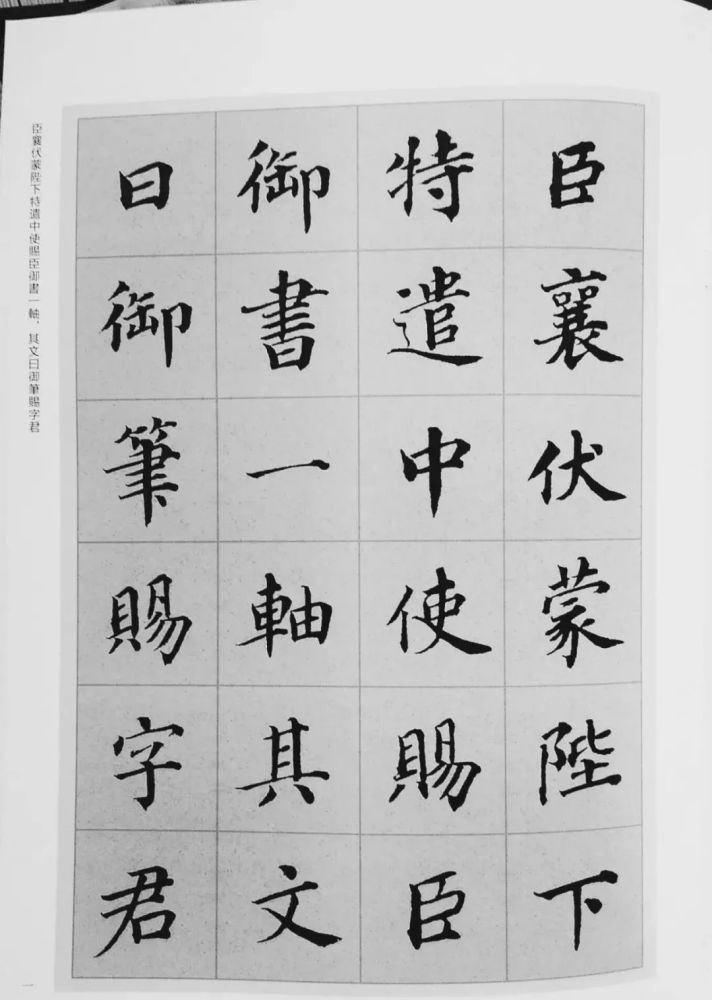 臣襄伏蒙陛下
特遣中使賜臣
御書一軸其文
曰御筆賜字君
臣襄伏蒙陛下特遣中使賜臣御書一軸，其文曰御筆賜字君
一